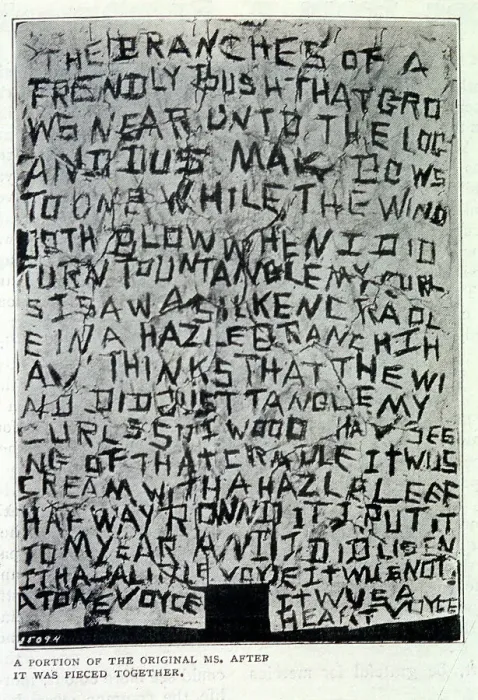 THE BRANCHES OF A
FRENDLY BUSH THAT GRO
WS NEAR UNTO THE LOG
AND DUS MAK BOWS
TO ONE WHILE THE WIND
DOTH BLOW WHEN I DID
TURN TO UNTANGLE MY CURL
S I SAW A SILKEN CRADL
E IN A HAZLE BRANCH I H
AV THINKS THAT THE WI
ND DID JUST TANGLE MY
CURLS SO I WOOD HAV SEE
NG OF THAT CRADLE IT WUS
CREAM WITH A HAZLE LEEF
HAF WAY ROWND IT I PUT IT
TO MY EAR AND I DID LISEN
IT HAD A LITTLE VOYCE IT WUS NOT
A TONE VOYCE IT WUS A
HEART VOYCE
15094
A PORTION OF THE ORIGINAL MS. AFTER
IT WAS PIECED TOGETHER.